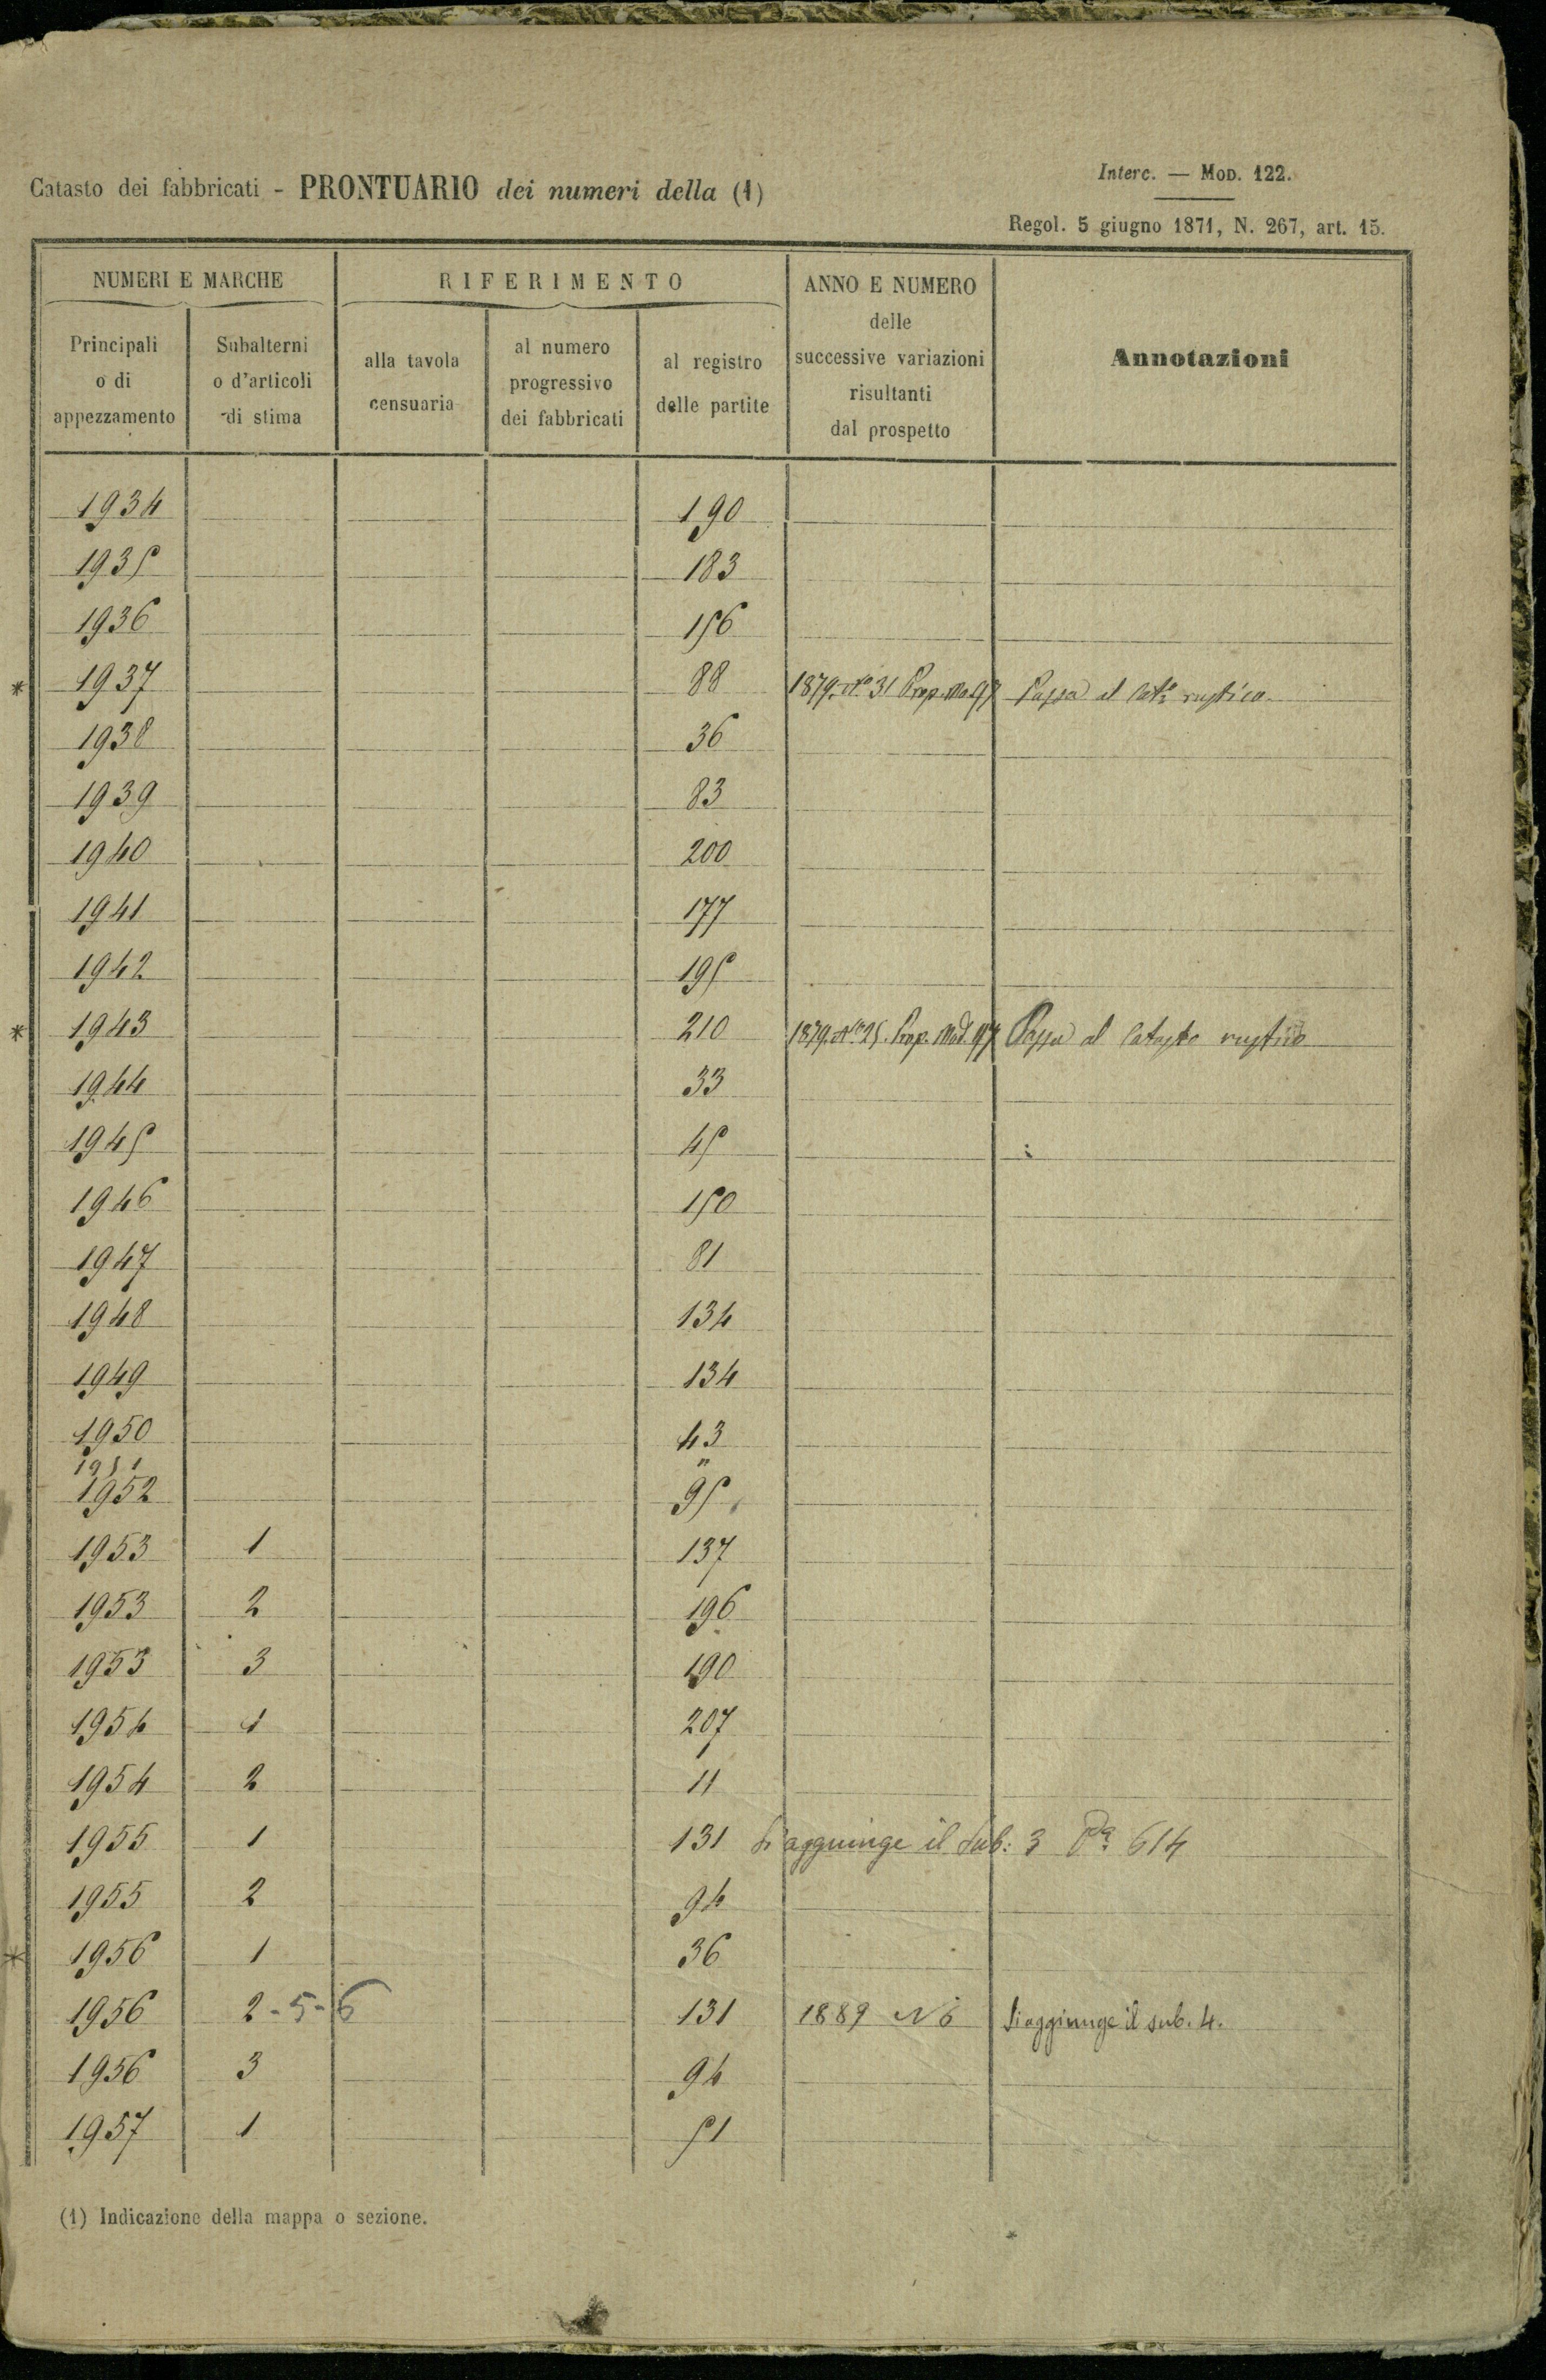 Interc. — MOD. 122.
Catasto dei fabbricati - PRONTUARIO dei numeri della (1)
Regol. 5 giugno 1871, N. 267, art. 15.
NUMERI E MARCHE
RIFERIMENTO
ANNO E NUMERO
delle
successive variazioni
risultanti
dal prospetto
Annotazioni
Principali
o di
appezzamento
Subalterni
o d'articoli
di stima
alla tavola
censuaria
al numero
progressivo
dei fabbricati
al registro
delle partite
1934 190
1935 183
1936 156
* 1937 88 1879. No 31 Prop. Mo 97 Passa al Cato rustico
1938 36
1939 83
1940 200
1941 177
1942 195
* 1943 210 1879. No 25. Prop. Mod. 97 Passa al Catasto rustico
1944 33
1945 45
1946 150
1947 81
1948 134
1949 134
1950 43
1951 "
1952 95
1953 1 137
1953 2 196
1953 3 190
1954 1 207
1954 2 11
1955 1 131 Si aggiunge il Sub: 3 Pa 614
1955 2 94
* 1956 1 36
1956 2-5-6 131 1889 N 6 Si aggiunge il sub. 4.
1956 3 94
1957 1 51
(1) Indicazione della mappa o sezione.